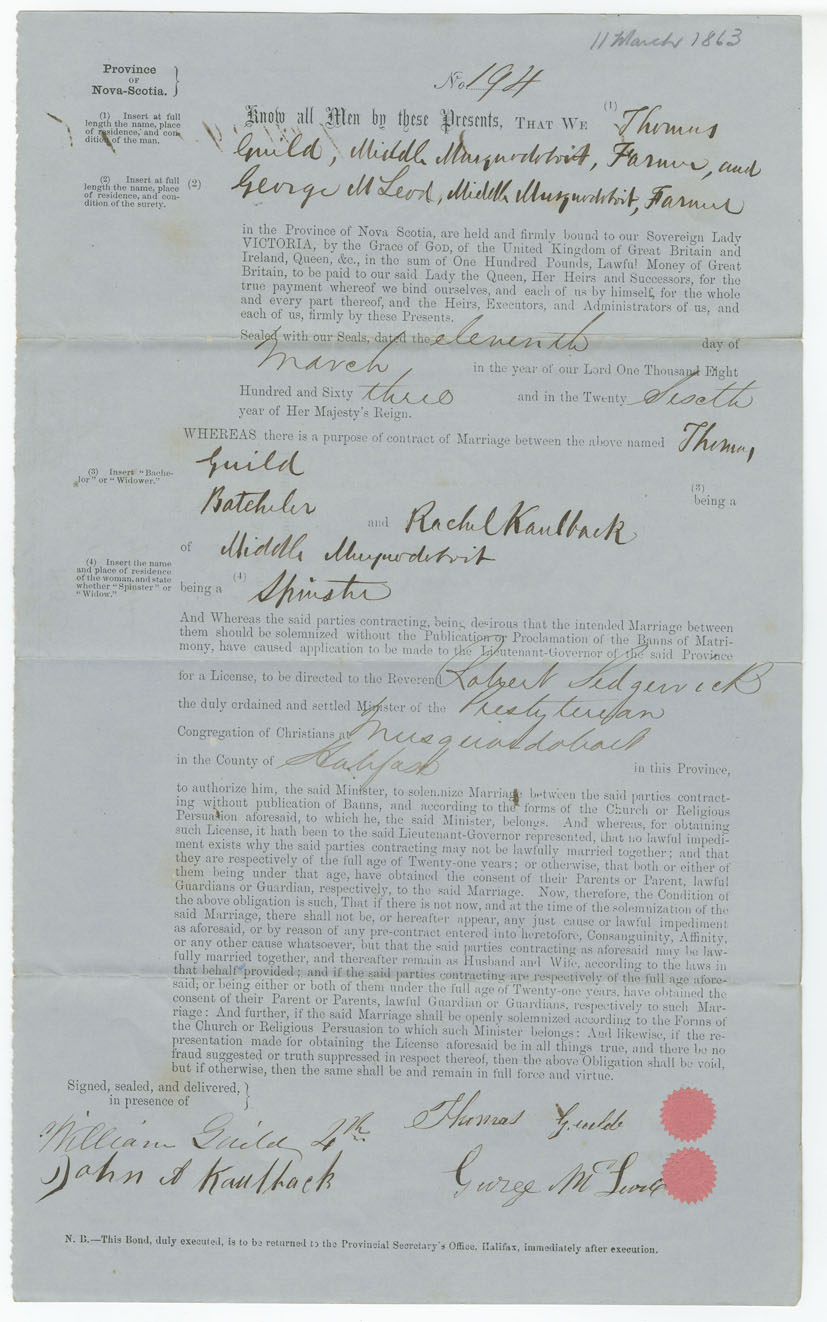 11 March 1863
Province
OF
Nova-Scotia.
No 194
(1) Insert at full
length the name, place
of residence, and con-
dition of the man.
Know all Men by these Presents, THAT WE (1) Thomas
Guild, Middle Musquodoboit, Farmer, and
(2) Insert at full
length the name, place
of residence, and con-
dition of the surety.
(2) George McLeod, Middle Musquodoboit, Farmer
in the Province of Nova Scotia, are held and firmly bound to our Sovereign Lady
VICTORIA, by the Grace of GOD, of the United Kingdom of Great Britain and
Ireland, Queen, &c., in the sum of One Hundred Pounds, Lawful Money of Great
Britain, to be paid to our said Lady the Queen, Her Heirs and Successors, for the
true payment whereof we bind ourselves, and each of us by himself, for the whole
and every part thereof, and the Heirs, Executors, and Administrators of us, and
each of us, firmly by these Presents.
Sealed with our Seals, dated the eleventh day of
March in the year of our Lord One Thousand Eight
Hundred and Sixty three and in the Twenty Sixth
year of Her Majesty's Reign.
WHEREAS there is a purpose of contract of Marriage between the above named Thomas
Guild
(3) Insert "Bache-
lor" or "Widower."
(3)
Batcheler being a
and Rachel Kaulback
of Middle Musquodoboit
(4) Insert the name
and place of residence
of the woman, and state
whether "Spinster" or
"Widow."
being a (4) Spinster
And Whereas the said parties contracting, being desirous that the intended Marriage between
them should be solemnized without the Publication or Proclamation of the Banns of Matri-
mony, have caused application to be made to the Lieutenant-Governor of the said Province
for a License, to be directed to the Reverend Robert Sedgewick
the duly ordained and settled Minister of the Presbyterian
Congregation of Christians at Musquodoboit
in the County of Halifax in this Province,
to authorize him, the said Minister, to solemnize Marriage between the said parties contract-
ing without publication of Banns, and according to the forms of the Church or Religious
Persuasion aforesaid, to which he, the said Minister, belongs. And whereas, for obtaining
such License, it hath been to the said Lieutenant-Governor represented, that no lawful impedi-
ment exists why the said parties contracting may not be lawfully married together; and that
they are respectively of the full age of Twenty-one years; or otherwise, that both or either of
them being under that age, have obtained the consent of their Parents or Parent, lawful
Guardians or Guardian, respectively, to the said Marriage. Now, therefore, the Condition of
the above obligation is such, That if there is not now, and at the time of the solemnization of the
said Marriage, there shall not be, or hereafter appear, any just cause or lawful impediment
as aforesaid, or by reason of any pre-contract entered into heretofore, Consanguinity, Affinity,
or any other cause whatsoever, but that the said parties contracting as aforesaid may be law-
fully married together, and thereafter remain as Husband and Wife, according to the laws in
that behalf provided; and if the said parties contracting are respectively of the full age afore-
said; or being either or both of them under the full age of Twenty-one years, have obtained the
consent of their Parent or Parents, lawful Guardian or Guardians, respectively to such Mar-
riage: And further, if the said Marriage shall be openly solemnized according to the Forms of
the Church or Religious Persuasion to which such Minister belongs: And likewise, if the re-
presentation made for obtaining the License aforesaid be in all things true, and there be no
fraud suggested or truth suppressed in respect thereof, then the above Obligation shall be void,
but if otherwise, then the same shall be and remain in full force and virtue.
Signed, sealed, and delivered,
in presence of
William Guild 4th Thomas Guild
John A Kaulback George McLeod
N. B.—This Bond, duly executed, is to be returned to the Provincial Secretary's Office, Halifax, immediately after execution.